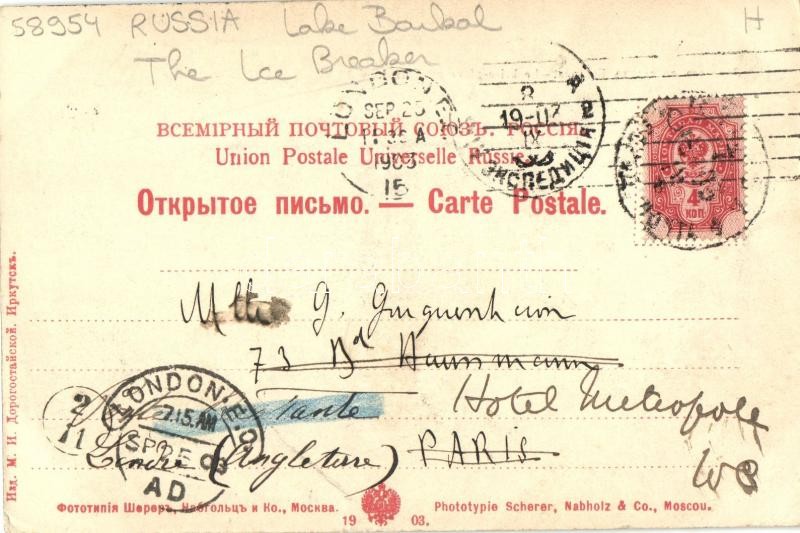 58954 RUSSIA Lake Baikal H
The Ice Breaker
LONDON E.
SEP 25
1903
15
8
19-07
IX
ЭКСПЕДИЦІЯ
ВСЕМІРНЫЙ ПОЧТОВЫЙ СОЮЗЪ. РОССІЯ.
Union Postale Universelle Russie.
Открытое письмо. — Carte Postale.
4
КОП
G.
73 Bd Haussmann
Hotel Metropole
Londres (Angleterre) PARIS
WC
LONDON. E.C
7.15.AM
SP 25 03
AD
2
11
Изд. М. И. Дорогостайской. Иркутскъ.
Фототипія Шереръ, Набгольцъ и Ко., Москва.
19 03.
Phototypie Scherer, Nabholz & Co., Moscou.